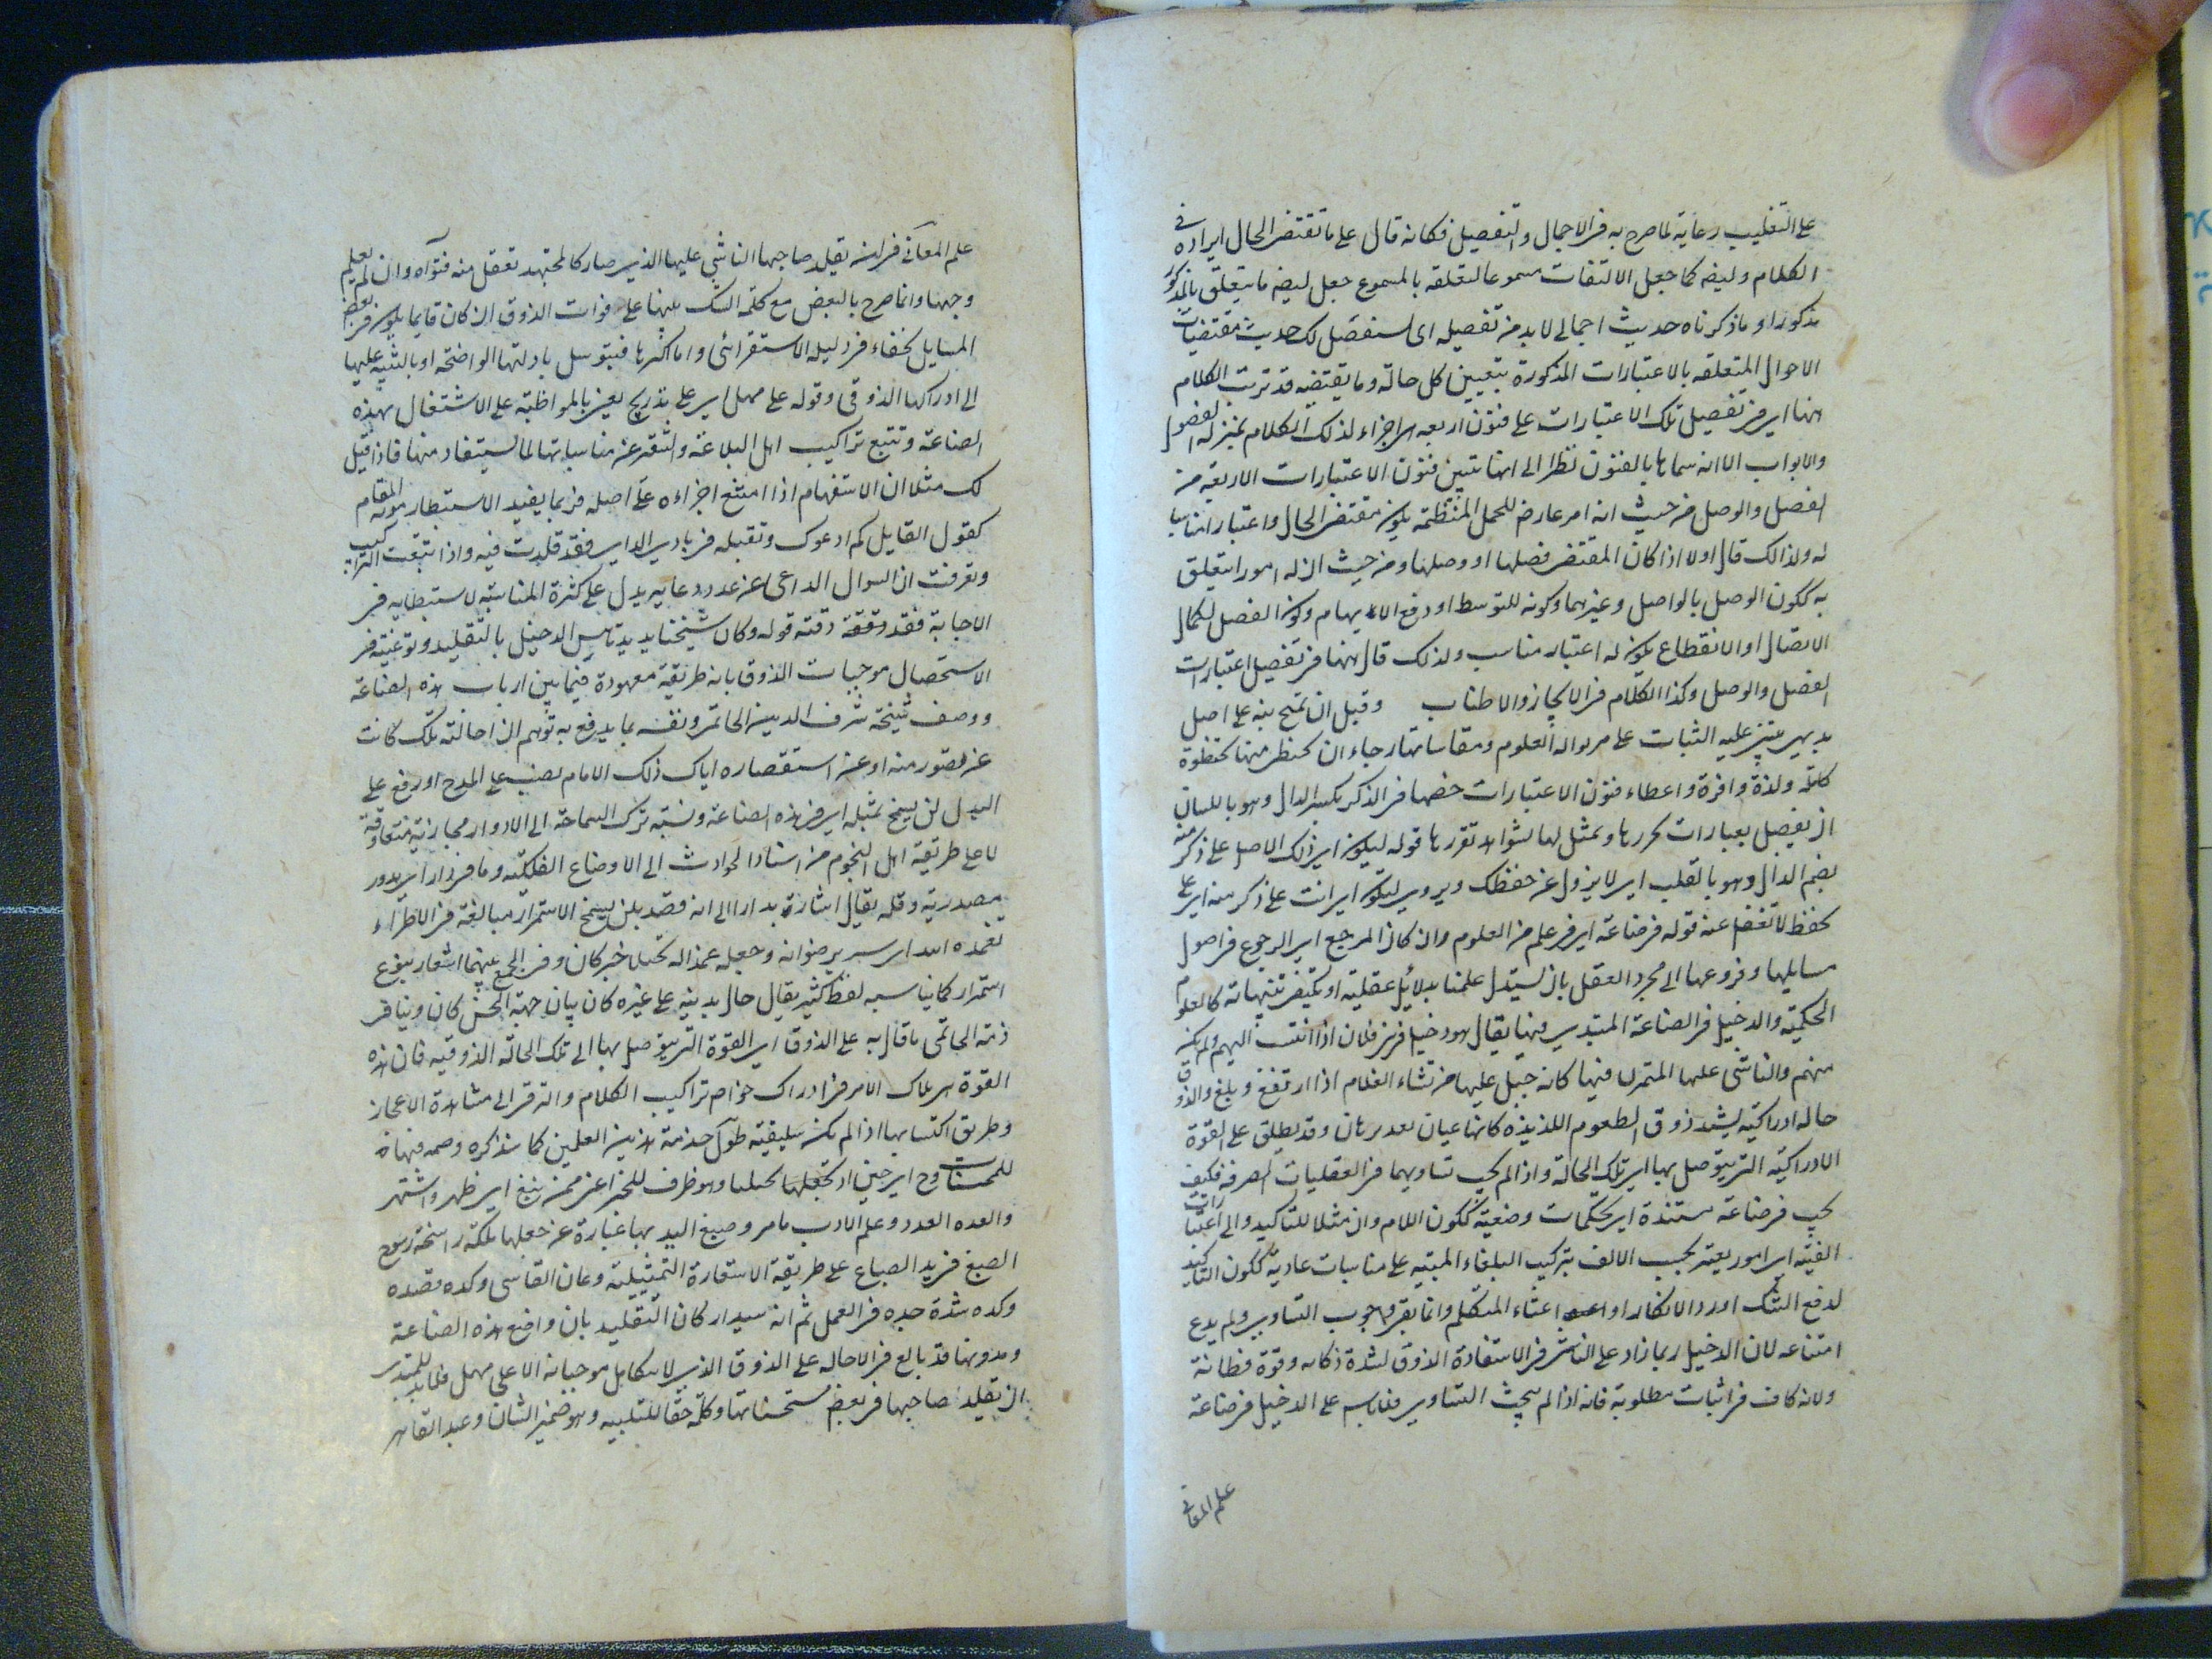 على التغليب رعاية لما صرح به فى الاجمال والتفصيل فكانه قال على ما تقتضى الحال ايراده فى
الكلام وليضه كما جعل الالتفات مسموعا لتعلقه بالمسموع جعل ليضه ما يتعلق بالمذكور
مذكورا وما ذكرناه حديث اجمالى لابد من تفصيله اى لسنفصل لك حديث مقتضيات
الاحوال المتعلقه بالاعتبارات المذكورة بتعيين كل حالة وما يقتضيه قد ترتب الكلام
ههنا اى فى تفصيل تلك الاعتبارات على فنون اربعه هى اجزاء لذلك الكلام بمنزله الفصول
والابواب الا انه سماها بالفنون نظرا الى انها تبين فنون الاعتبارات الاربعة من
الفصل والوصل من حيث انه امر عارض للجمل المنتظمة يكون مقتضى الحال واعتبارا مناسبا
له ولذالك قال اولا اذا كان المقتضى فصلها او وصلها ومن حيث ان له امورا يتعلق
به ككون الوصل بالواصل وغيرهما وكونه للتوسط او دفع الايهام وكون الفصل لكمال
الاتصال او الانقطاع يكون له اعتبار مناسب ولذلك قال ههنا فى تفصيل اعتبارات
الفصل والوصل وكذا الكلام فى الايجاز والاطناب وقبل ان نمنح بنه على اصل
كلمه ولذة وافرة واعطاء فنون الاعتبارات حضها فى الذكر بكسر الذال وهو باللسان
ان يفصل بعبارات كررها وتمثل لها بشواهد تقررها قوله ليكون اى ذلك الاصل على ذكر منه
بضم الذال وهو بالقلب اى لا يزول عن حفظك ويروى لتكون اى انت على ذكر منه اى على
حفظ لا تغفل عنه قوله فى صناعة اى فى علم من العلوم وان كان المرجع اى الرجوع فى اصول
مسايلها وفروعها الى مجرد العقل بان يستدل عليها بدلائل عقلية او يكتفى بتنبيهاته كالعلوم
الحكمية والدخيل فى الصناعة المبتدى فيها يقال هو دخيل فى بنى فلان اذا انتسب اليهم ولم يكن
منهم والناشى عليها المتمرن فيها كانه جبل عليها من نشاء الغلام اذا ارتفع وبلغ والذوق
حاله ادراكية يشبه ذوق الطعوم اللذيذه كانها عيان بعد برهان وقد يطلق على القوة
الادراكية التى يتوصل بها الى تلك الحالة واذا لم يجب تساويهما فى العقليات الصرفه فكيف
يجب فى صناعة مستندة الى تحكمات وضعية ككون اللام وان مثلا للتاكيد والى اعتبارات
الفيه اى امور يعتبر بحسب الالف بتركيب البلغاء المبنيه على مناسبات عادية ككون التاكيد
لدفع الشك او رد الانكار او اعتناء المتكلم وانما يقر وجوب التساوى ولم يدع
امتناعه لان الدخيل ربما زاد على الناشى فى الاستفادة الذوق لشدة ذكائه وقوة فطانة
ولانه كاف فى اثبات مطلوبة فانه اذا لم يجب التساوى فلا باس على الدخيل فى صناعة
علم المعانى
علم المعانى فى ان يقلد صاحبها الناشى عليها الذى صار كالمجتهد تعقل منه فتواه وان لم يعلم
وجهها وانما صرح بالبعض مع كلمة الشك تنبيها على فوات الذوق ان كان قايما يكون فى بعض
المسايل لخفاء فى دليله الاستقرائى واما اكثرها فيتوسل بادلتها الواضحة او بالتنبيه عليها
الى ادراكها الذوقى وقوله على مهل اى على تدريج يعنى بالمواظبة على الاشتغال بهذه
الصناعة وتتبع تراكيب اهل البلاغه والتفتر عن مناسباتها لما يستفاد منها فاذا قيل
لك مثلا ان الاستفهام اذا امتنع اجراءه على اصله فربما يفيد الاستبطاء بمعونة المقام
كقول القايل كم ادعوك وتقبله فى بادى الراى فقد قلدت فيه واذا تتبعت التراكيب
وتعرفت ان السوال الداعى عن عدد دعايه يدل على كثرة المناسبة لاستبطايه فى
الاجابة فقد ذقته قوله وكان شيخنا يريد تانيس الدخيل بالتقليد وتوغيته فى
الاستحصال موجبات الذوق بانه طريقة معهودة فيما بين ارباب هذه الصناعة
ووصف شيخه شرف الدين الحاتمى ونفسه بما يدفع به توهم ان احالته تلك كانت
عن قصور منه او عن استقصاره اياك ذلك الامام نصب على المدح او رفع على
البدل لن يسمح بمثله اى فى هذه الصناعة ونسبة ترك السماحة الى الادوار مجازية متعارفة
لا على طريقة اهل النجوم من اسناد الحوادث الى الاوضاع الفلكيه وما فى دار اى يدور
مصدرية وقلما يقال اشارة بدار الى انه قصد بلن يسمح الاستمرار مبالغة فى الاطراء
تغمده الله اى ستره برضوانه وجعله عمدا له خبر كان وفى الجمع بينهما اشعار بنوع
استمرار كما يناسبه لفظ كثير يقال حال بدينه على غيره كان بيان جهة الحسن كان وينافى
ذمة الحاتمى ما قال به على الذوق اى القوة التى يتوصل بها الى تلك الحالة الذوقيه فان هذه
القوة هى ملاك الامر فى ادراك خواص تراكيب الكلام والترقى الى مشاهدة الاعجاز
وطريق اكتسابها اذا لم تكن سليقية طول خدمة هذين العلمين كما سنذكره
والعده العدد وعلم الادب ما مر وصبغ اليد بها عبارة عن جعلها ملكة راسخة رسوخ
الصبغ فى يد الصباغ على طريقة الاستعارة التمثيلية وعان القاسى وكده قصده
وكده شدة جده فى العمل ثم انه سيدار كان التقليد بان واضع هذه الصناعة
ومدونها قد بالع فى الاحاله على الذوق الذى لا يتكامل موجباته الا على مهل فلابد للمبتدى
ان يقلد صاحبها فى بعض مستحسناتها وكلمة حقا للتنبيه وهو ضمير الشان وعبد القاهر